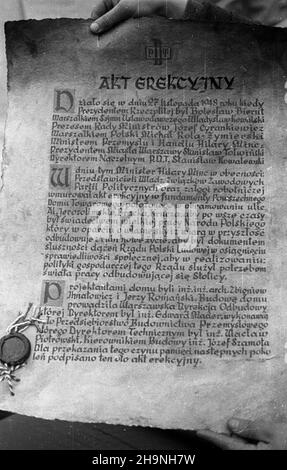 PDT
AKT EREKCYJNY
Działo się w dniu 27 listopada 1948 roku kiedy
Prezydentem Rzeczplitej był Bolesław Bierut
Marszałkiem Sejmu Ustawodawczego Władysław Kowalski
Prezesem Rady Ministrów Józef Cyrankiewicz
Marszałkiem Polski Michał Rola-Żymierski
Ministrem Przemysłu i Handlu Hilary Minc
Prezydentem Miasta Warszawy Stanisław Tołwiński
Dyrektorem Naczelnym P.D.T. Stanisław Kowalewski
W dniu tym Minister Hilary Minc w obecności
Przedstawicieli Władz, Związków Zawodowych
Partii Politycznych oraz załogi robotniczej
akt erekcyjny w fundamenty Powszechnego
Domu
Al. Jerozol po wsze czasy
by świadc Narodu Polskiego
który w o w przyszłość
odbudowuje dokumentem
słuszności dążeń Rządu Polski Ludowej w osiągnięciu
sprawiedliwości społecznej, aby w realizowaniu
polityki gospodarczej tego Rządu służył potrzebom
świata pracy odbudowującej się Stolicy.
Projektantami domu byli inż. inż. arch. Zbigniew
Ihnatowicz i Jerzy Romański. Budowę domu
prowadziła Warszawska Dyrekcja Odbudowy
której Dyrektorem był inż. Edward Mader, wykonawcą
Przedsiębiorstwo Budownictwa Przemysłowego
którego Dyrektorem Technicznym był inż. Wacław
Piotrowski, Kierownikiem Budowy inż. Józef Szamota
Dla przekazania tego czynu pamięci następnych poko
leń podpisano ten oto akt erekcyjny.
alamy
Image ID: 2HNH7W
www.alamy.com